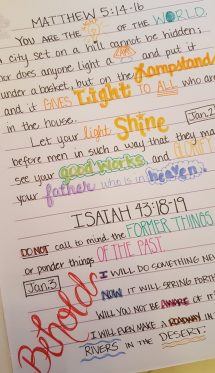 MATTHEW 5:14-16
YOU ARE THE OF THE WORLD.
city set on a hill cannot be hidden;
nor does anyone light a and put it
under a basket, but on the lampstand
and it GIVES Light TO ALL who are
in the house.
Jan.2
Let your light Shine
before men in such a way that they may
see your good works and GLORIFY
your father who is in heaven.
ISAIAH 43:18-19
DO NOT call to mind the FORMER THINGS
or ponder things OF THE PAST.
Jan.3
Behold
I WILL DO SOMETHING NEW
NOW IT WILL SPRING FORTH
WILL YOU NOT BE AWARE OF IT
I WILL EVEN MAKE A ROADWAY IN
RIVERS IN THE DESERT.